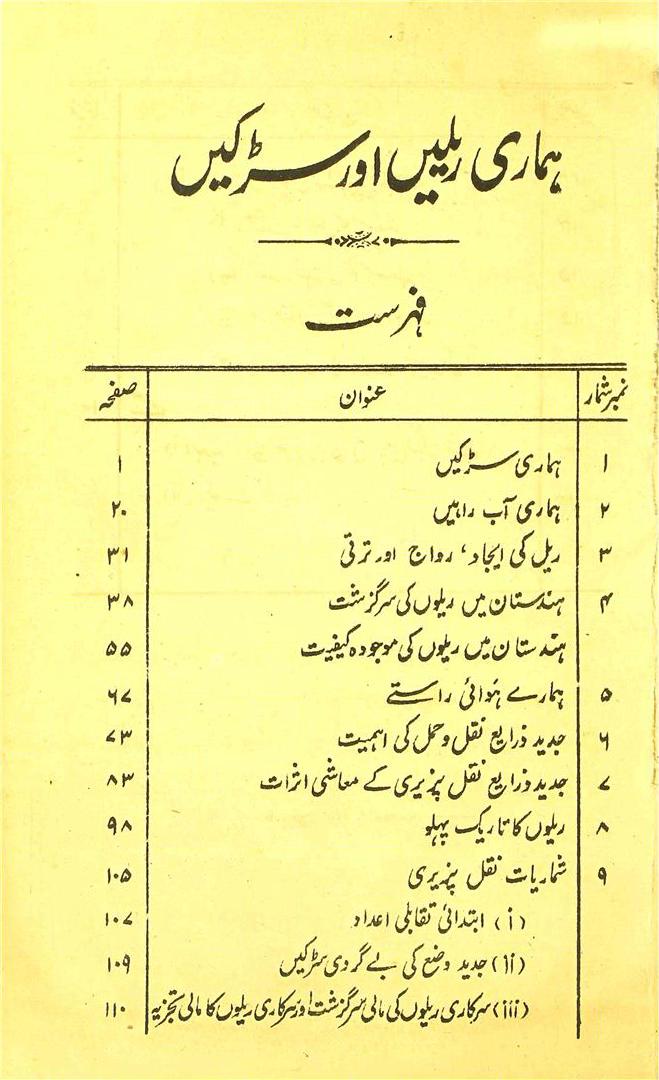 ہماری ریلیں اور سڑکیں
فہرست
نمبر شمار عنوان صفحہ
۱ ہماری سڑکیں ۱
۲ ہماری آب راہیں ۲۰
۳ ریل کی ایجاد، رواج اور ترقی ۳۱
۴ ہندستان میں ریلوں کی سرگزشت ۳۸
ہندستان میں ریلوں کی موجودہ کیفیت ۵۵
۵ ہمارے ہوائی راستے ۶۷
۶ جدید ذرایع نقل و حمل کی اہمیت ۷۳
۷ جدید ذرایع نقل پزیری کے معاشی اثرات ۸۳
۸ ریلوں کا تاریک پہلو ۹۸
۹ شماریات نقل پزیری ۱۰۵
(i) ابتدائی تقابلی اعداد ۱۰۷
(ii) جدید وضع کی بے گردی سڑکیں ۱۰۹
(iii) سرکاری ریلوں کی مالی سرگزشت اور سرکاری ریلوں کا مالی تجزیہ ۱۱۰